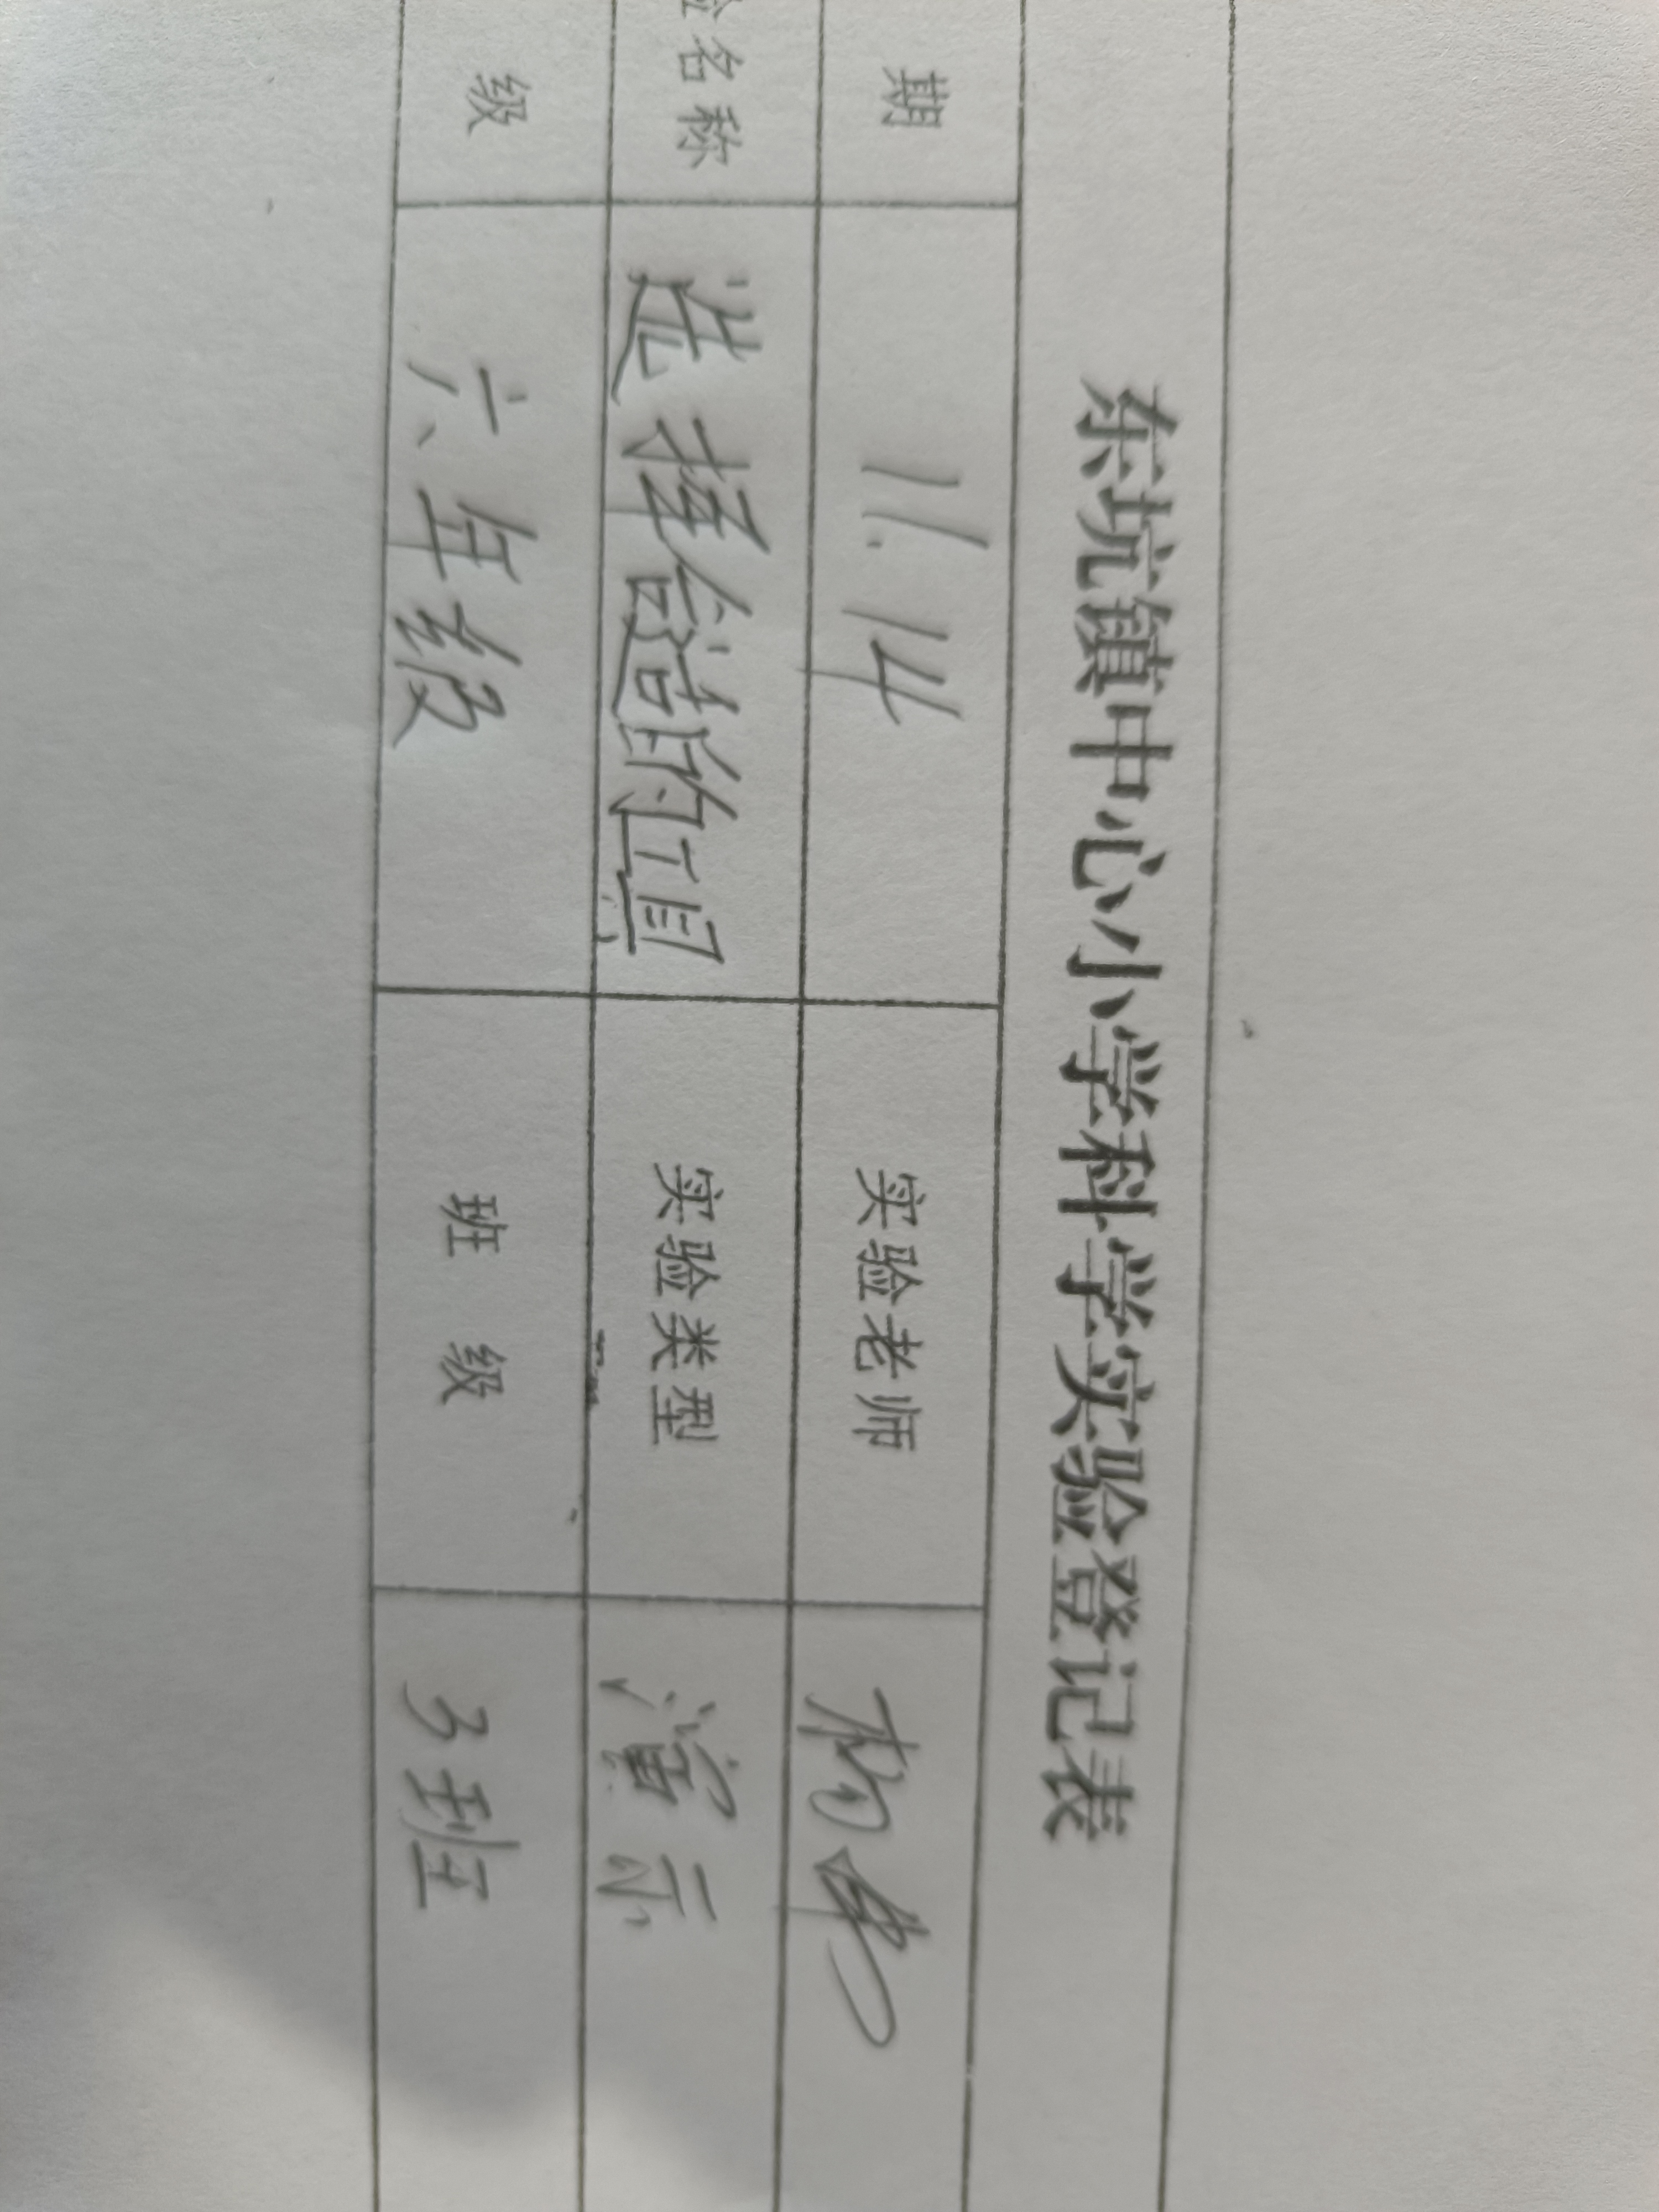 东坑镇中心小学科学实验登记表
期 11.14 实验老师 杨
验名称 选择合适的工具 实验类型 演示
级 六年级 班 级 3班